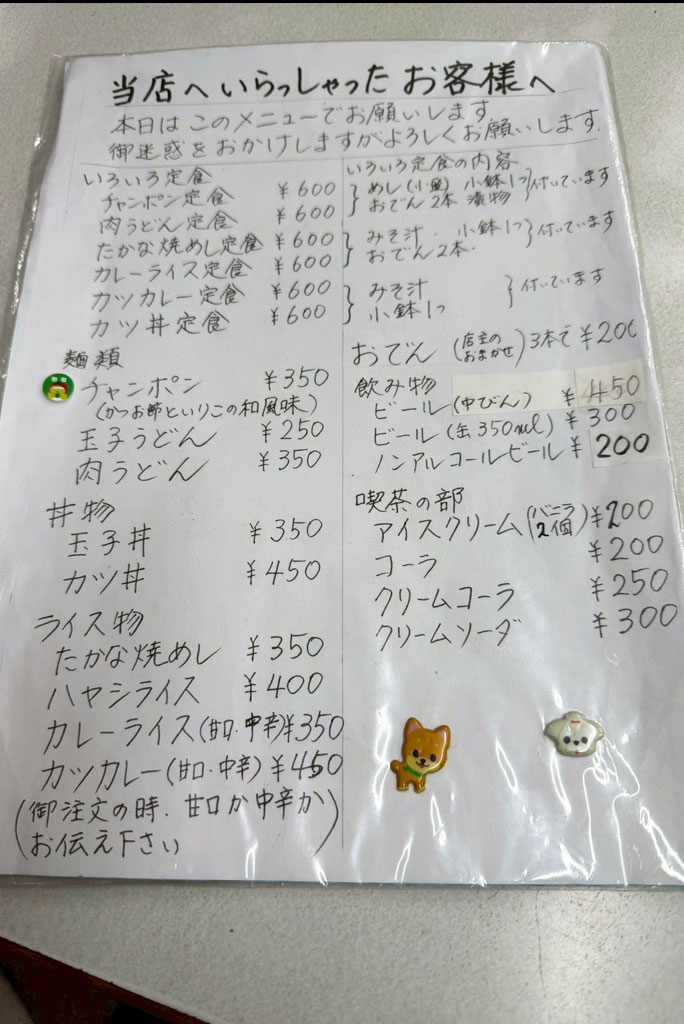 当店へいらっしゃったお客様へ
本日はこのメニューでお願いします
御迷惑をおかけしますがよろしくお願いします.
いろいろ定食
チャンポン定食 ¥600
肉うどん定食 ¥600
たかな焼めし定食 ¥600
カレーライス定食 ¥600
カツカレー定食 ¥600
カツ丼定食 ¥600
麺類
チャンポン ¥350
(かつお節といりこの和風味)
玉子うどん ¥250
肉うどん ¥350
丼物
玉子丼 ¥350
カツ丼 ¥450
ライス物
たかな焼めし ¥350
ハヤシライス ¥400
カレーライス(甘口・中辛)¥350
カツカレー(甘口・中辛)¥450
(御注文の時、甘口か中辛か
お伝え下さい)
いろいろ定食の内容
めし(小盛) 小鉢1つ
おでん2本 漬物 }付いています
みそ汁・小鉢1つ
おでん2本・ }付いています
みそ汁
小鉢1つ }付いています
おでん(店主のおまかせ)3本で¥200
飲み物
ビール(中びん) ¥450
ビール(缶350ml) ¥300
ノンアルコールビール ¥200
喫茶の部
アイスクリーム(バニラ2個)¥200
コーラ ¥200
クリームコーラ ¥250
クリームソーダ ¥300